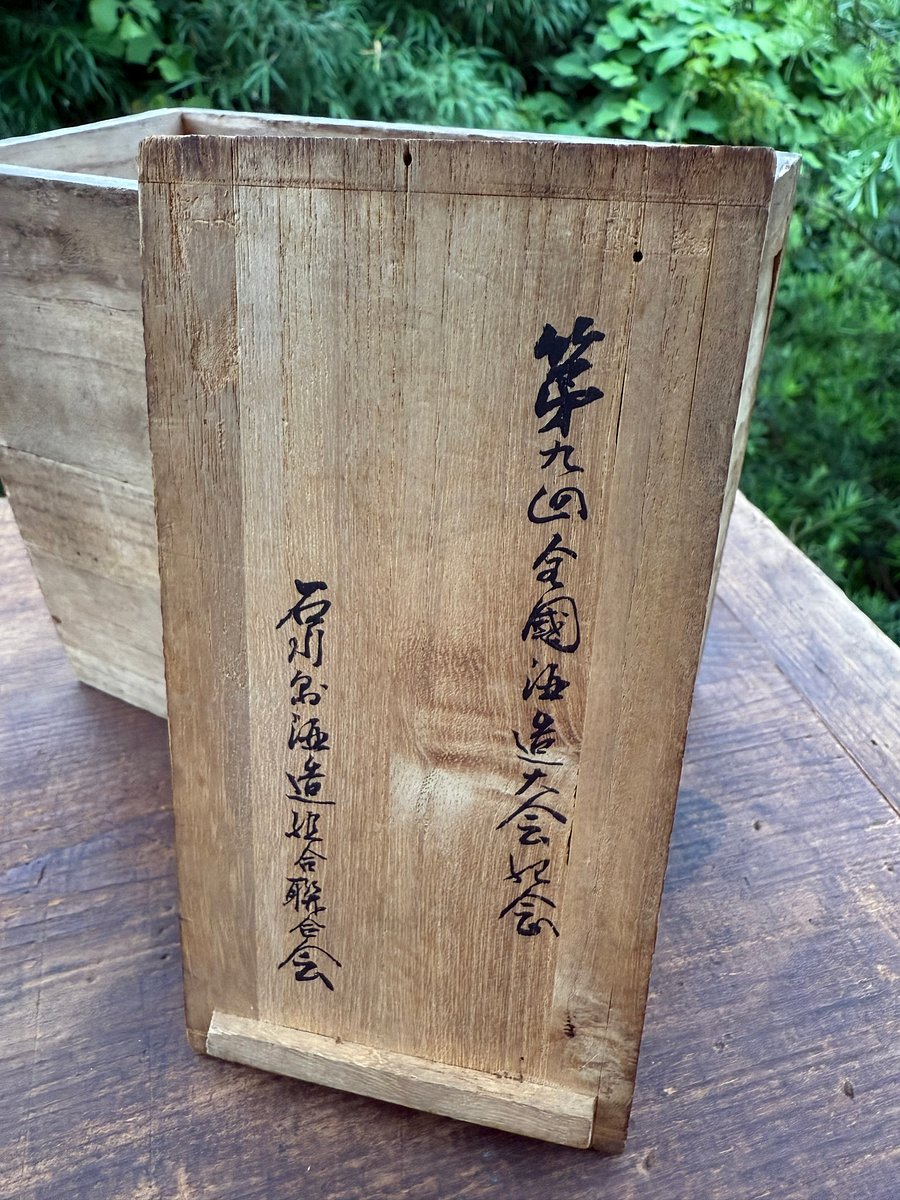 第九回全國酒造大会記念
石川県酒造組合聯合会